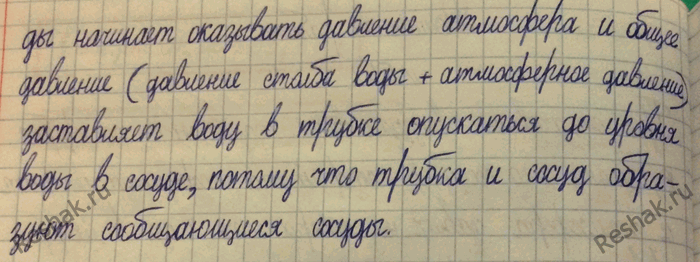 ды начинает оказывать давление атмосфера и общее
давление (давление столба воды + атмосферное давление)
заставляет воду в трубке опускаться до уровня
воды в сосуде, потому что трубка и сосуд обра-
зуют сообщающиеся сосуды.
Reshak.ru
Reshak.ru